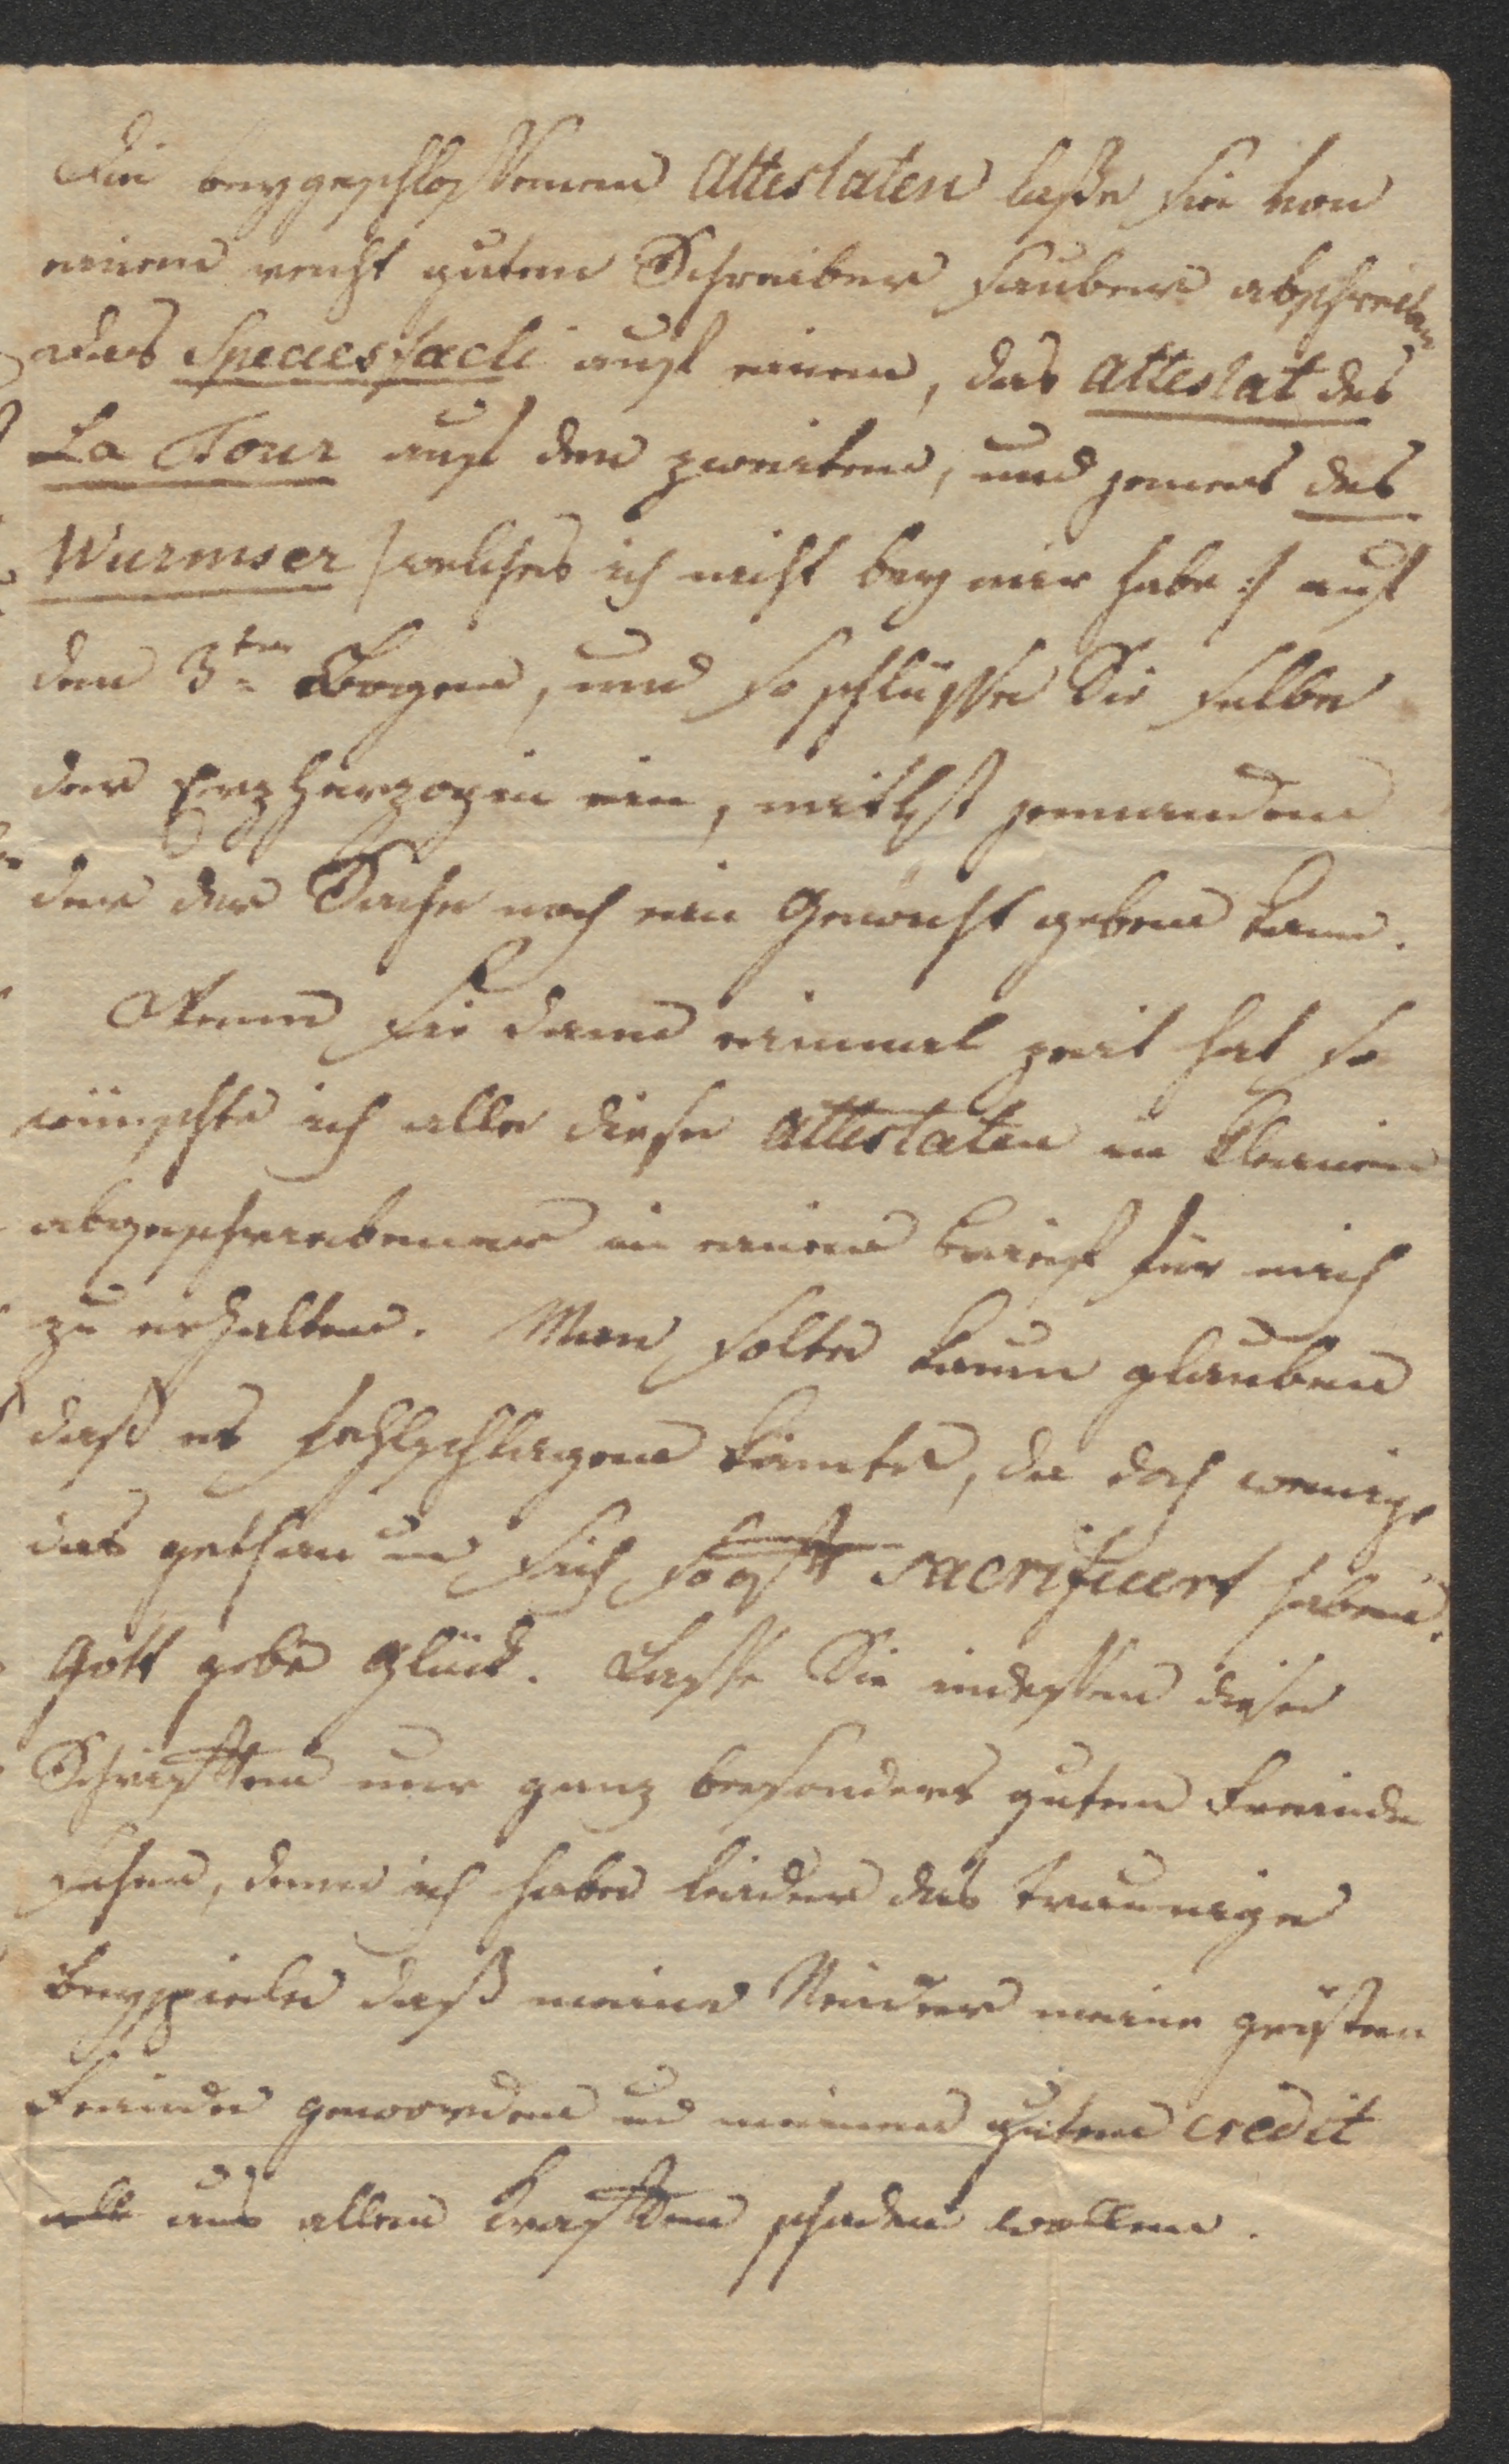 Die beygeschlossenen Attestaten laße sie von
einem recht guten Schreiber sauber abschreiben
das Speciesfacti auf einem, das Attestat des
La Tour auf den zweiten, und jenes des
Wurmser /: welches ich nicht bey mir habe :/ auf
den 3ten Bogen, und so schlüsse Sie selbe
der Erzherzogin ein, mitlst jemanden
der der Sache noch ein Gewicht geben kann.
Wenn sie dann einmal zeit hat so
wünschte ich alle diese Attestaten im kleinen
abgeschriebener in einem brief für mich
zu erhalten. Man solte kaum glauben
daß es fehlschlagen könnte, da doch wenige
das gethan und sich so oft sacrificert haben.
Gott gebe Glück. Lasse Sie indessen diese
Schriften nur ganz besonders guten Freunde
sehen, denn ich habe leider das traurige
Beyspiele daß meine Neider meine grösten
Feinde geworden und meinen guten credit
alle aus allen Krafften schaden wollen.